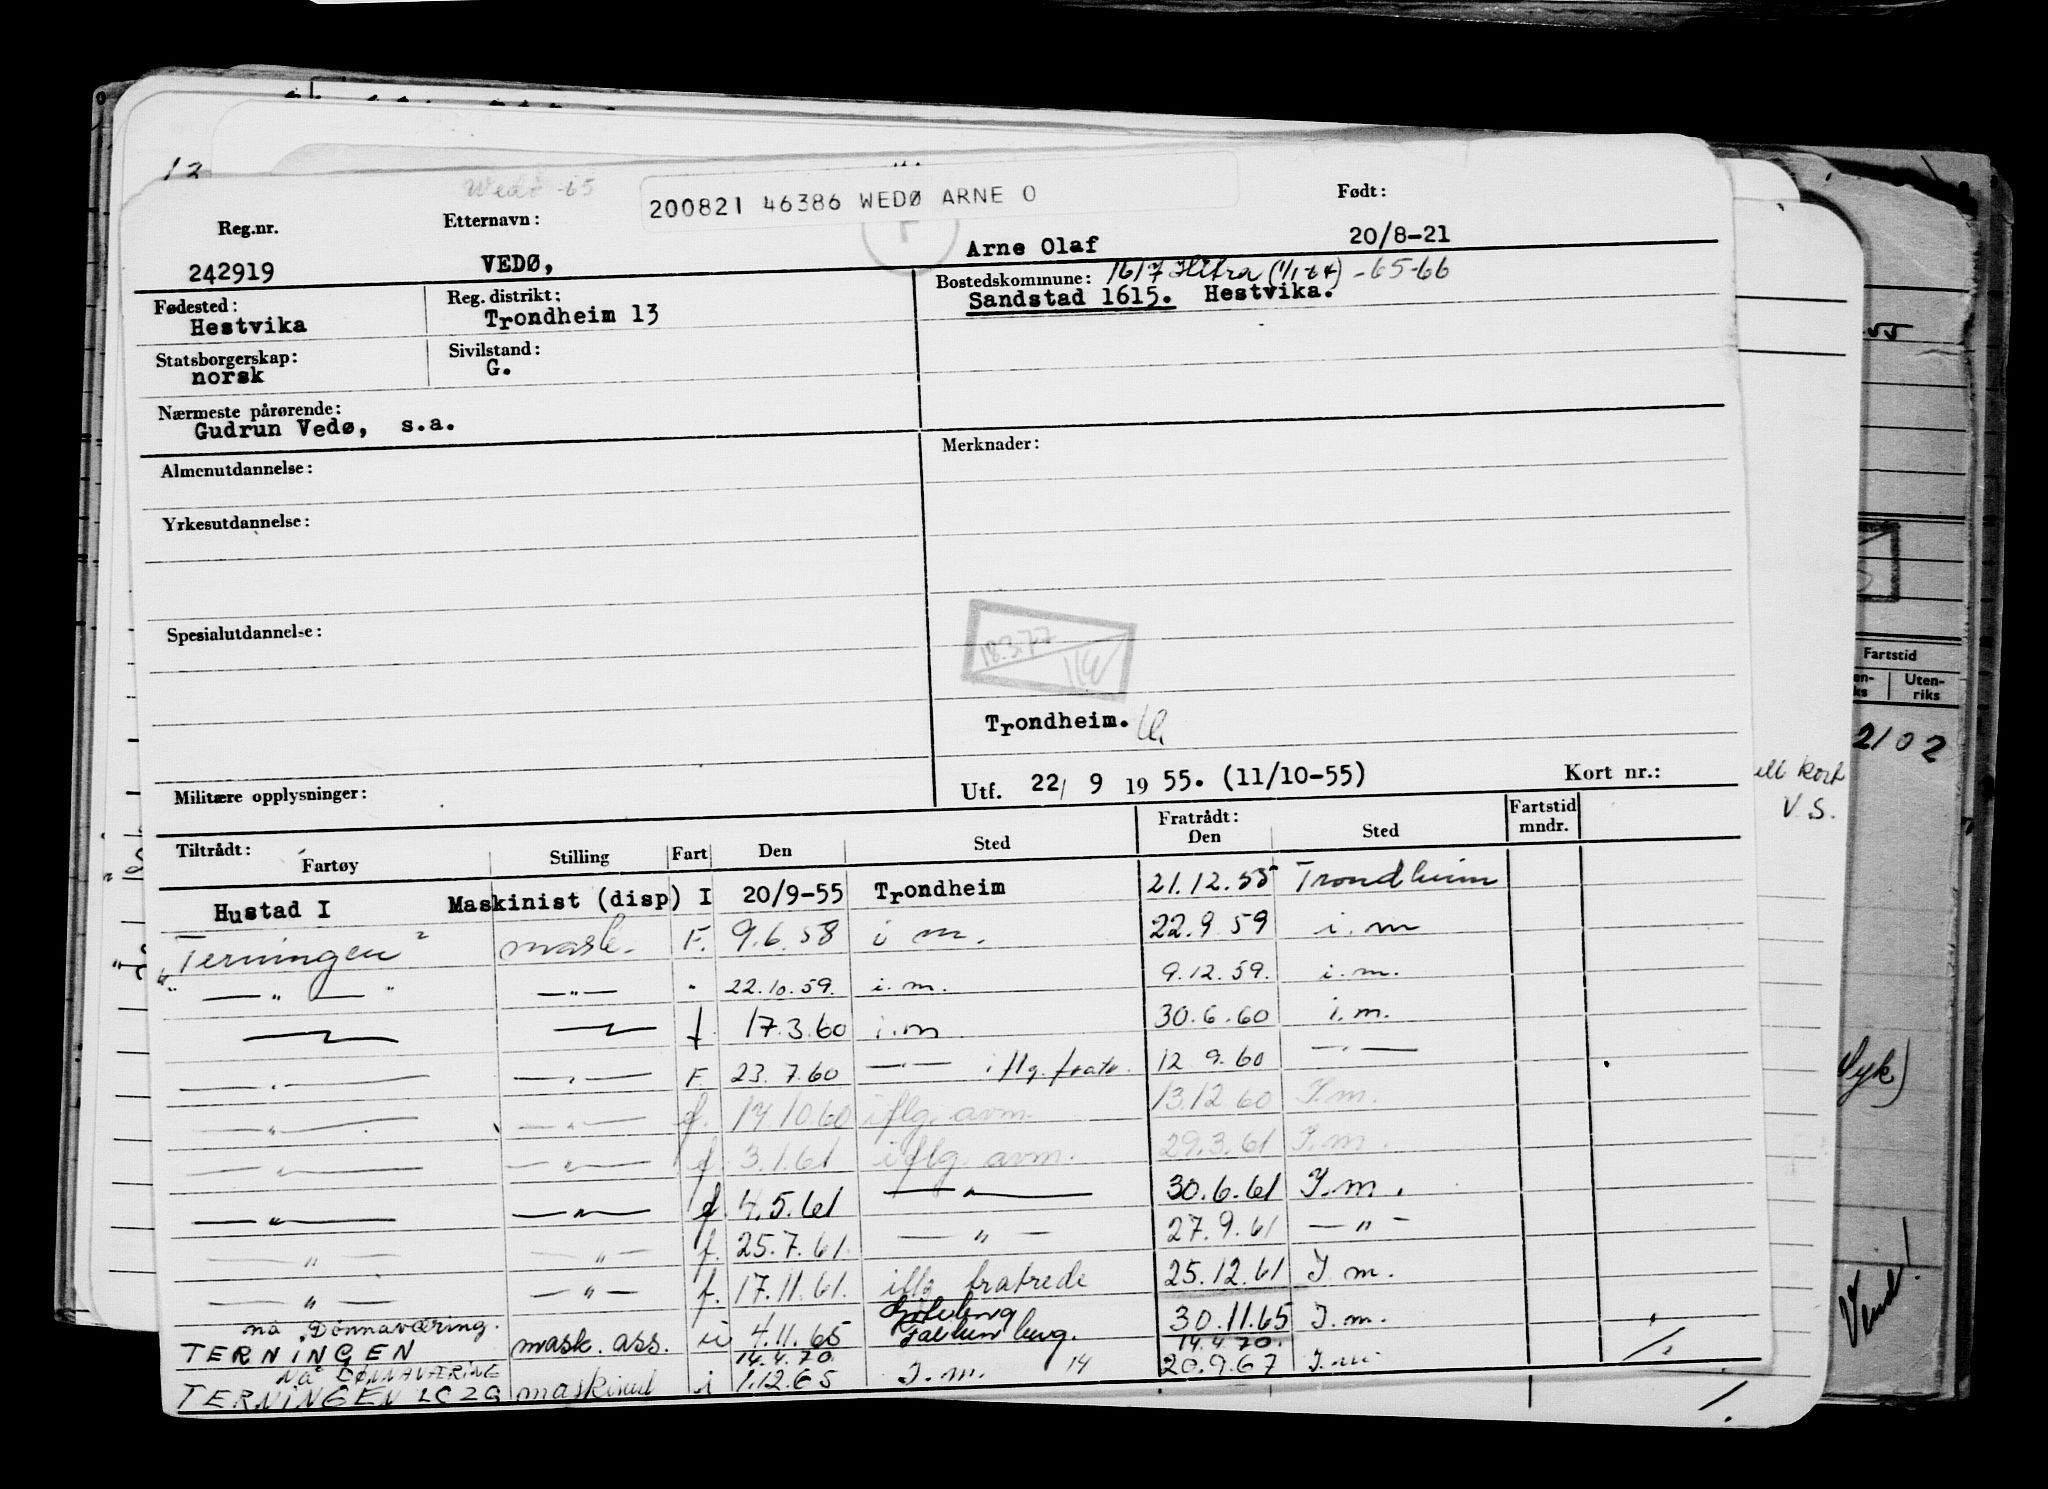 12
Wedø -65
200821 46386 WEDØ ARNE O
Født:
Reg.nr.
Etternavn:
F
242919
VEDØ,
Arne Olaf
20/8-21
Fødested:
Hestvika
Reg. distrikt:
Trondheim 13
Bostedskommune: 1617 Hitra (1/1-64) -65-66
Sandstad 1615. Hestvika.
Statsborgerskap:
norsk
Sivilstand:
G.
Nærmeste pårørende:
Gudrun Vedø, s.a.
Almenutdannelse:
Merknader:
Yrkesutdannelse:
Spesialutdannelse:
18.3.77
Trondheim.
Militære opplysninger:
Utf. 22/ 9 19 55. (11/10-55)
Kort nr.:
Tiltrådt:
Fartøy
Stilling
Fart
Den
Sted
Fratrådt:
Den
Sted
Fartstid
mndr.
Hustad I Maskinist (disp) I 20/9-55 Trondheim 21.12.55 Trondheim
"Terningen" mask. F. 9.6.58 i m. 22.9.59 i.m
" — " — " — " — " 22.10.59. i.m. 9.12.59. i.m.
— " — — " — f 17.3.60 i.m 30.6.60 i.m.
— " — — " — F. 23.7.60 — " — iflg. fratr. 12.9.60 — " —
— " — — " — f. 14.10.60 iflg. avm. 13.12.60 I.m.
— " — — " — f. 3.1.61 iflg. avm. 29.3.61 I.m.
— " — — " — f. 4.5.61 — " — 30.6.61 I.m.
— " — — " — f. 25.7.61. — " — 27.9.61 — " —
— " — — " — f. 17.11.61. iflg fratrede 25.12.61 I.m.
nå "Dønnaværing.
TERNINGEN mask. ass. u 4.11.65 Gøteborg 30.11.65 I.m.
14.4.70. 14.4.70.
NÅ DØNNAVÆRING
TERNINGEN LCZQ maskinist i 1.12.65 I.m. 14 20.9.67 I.m
55
Fartstid
Utenriks
2102
kort
V.S.
Vend!